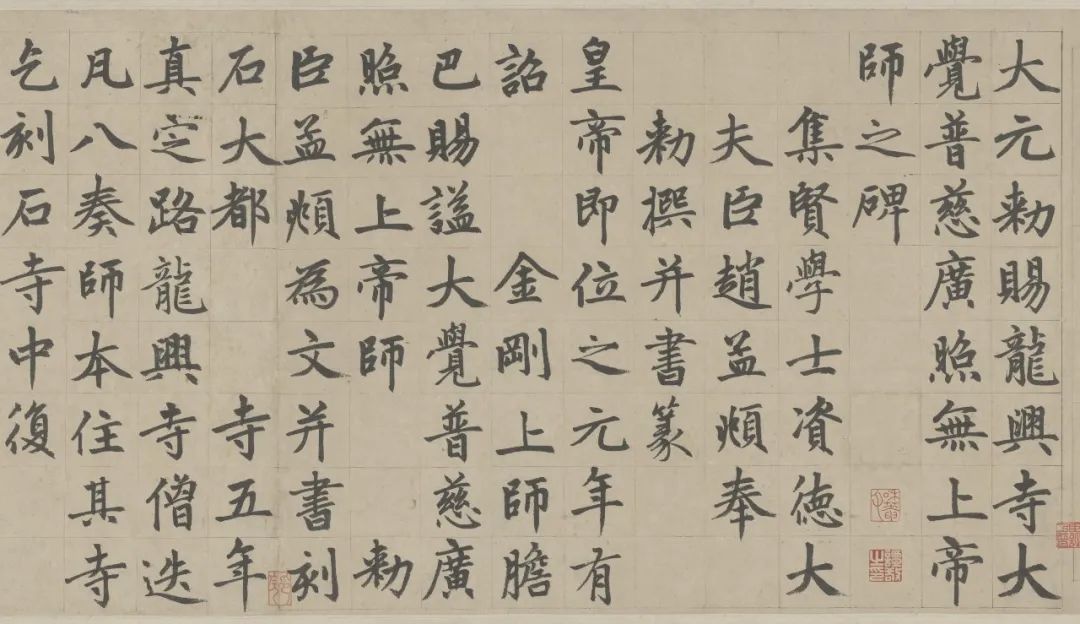 大元勑賜龍興寺大
覺普慈廣照無上帝
師之碑
集賢學士資德大
夫臣趙孟頫奉
勑撰并書篆
皇帝即位之元年有
詔金剛上師膽
巴賜謚大覺普慈廣
照無上帝師勑
臣孟頫為文并書刻
石大都寺五年
真定路龍興寺僧迭
凡八奏師本住其寺
乞刻石寺中復